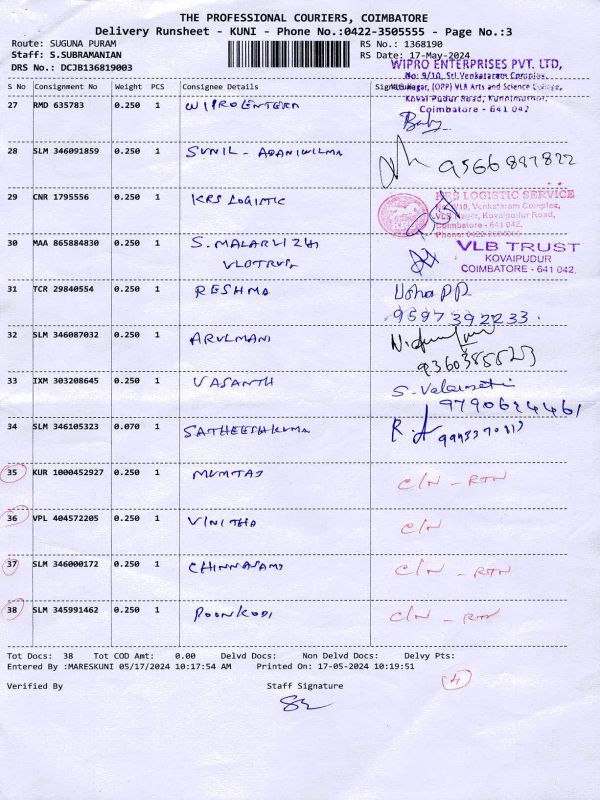 THE PROFESSIONAL COURIERS, COIMBATORE
Delivery Runsheet - KUNI - Phone No.:0422-3505555 - Page No.:3
Route: SUGUNA PURAM
RS No.: 1368190
Staff: S.SUBRAMANIAN
RS Date: 17-May-2024
DRS No.: DCJB136819003
WIPRO ENTERPRISES PVT. LTD,
No: 9/10, Sri Venkataram Complex,
VLB Nagar, (OPP) VLB Arts and Science College,
Kovai Pudur Road, Kuniamuthur,
Coimbatore - 641 042
S No Consignment No Weight PCS Consignee Details
27 RMD 635783 0.250 1 WIPRO ENTERR
Baby
28 SLM 346091859 0.250 1 SUNIL - ADANIWILMA
9566887822
29 CNR 1795556 0.250 1 KRS LOGISTIC
KRS LOGISTIC SERVICE
No.9/10, Venkataram Complex,
VLB Nagar, Kovaipudur Road,
Coimbatore - 641 042.
30 MAA 865884830 0.250 1 S. MALARVIZHI
VLBTRUST
VLB TRUST
KOVAIPUDUR
COIMBATORE - 641 042.
31 TCR 29840554 0.250 1 RESHMA
Usha PP
9597392233.
32 SLM 346087032 0.250 1 ARULMANI
9360385523
33 IXM 303208645 0.250 1 VASANTH
9790624461
34 SLM 346105323 0.070 1 SATHEESHKUMA
35 KUR 1000452927 0.250 1 MUMTAJ C/N - RTN
36 VPL 404572205 0.250 1 VINITHA C/N
37 SLM 346000172 0.250 1 CHINNASAMI C/N - RTN
38 SLM 345991462 0.250 1 POONKODI C/N - RTN
Tot Docs: 38 Tot COD Amt: 0.00 Delvd Docs: Non Delvd Docs: Delvy Pts:
Entered By :MARESKUNI 05/17/2024 10:17:54 AM Printed On: 17-05-2024 10:19:51
Verified By Staff Signature
4